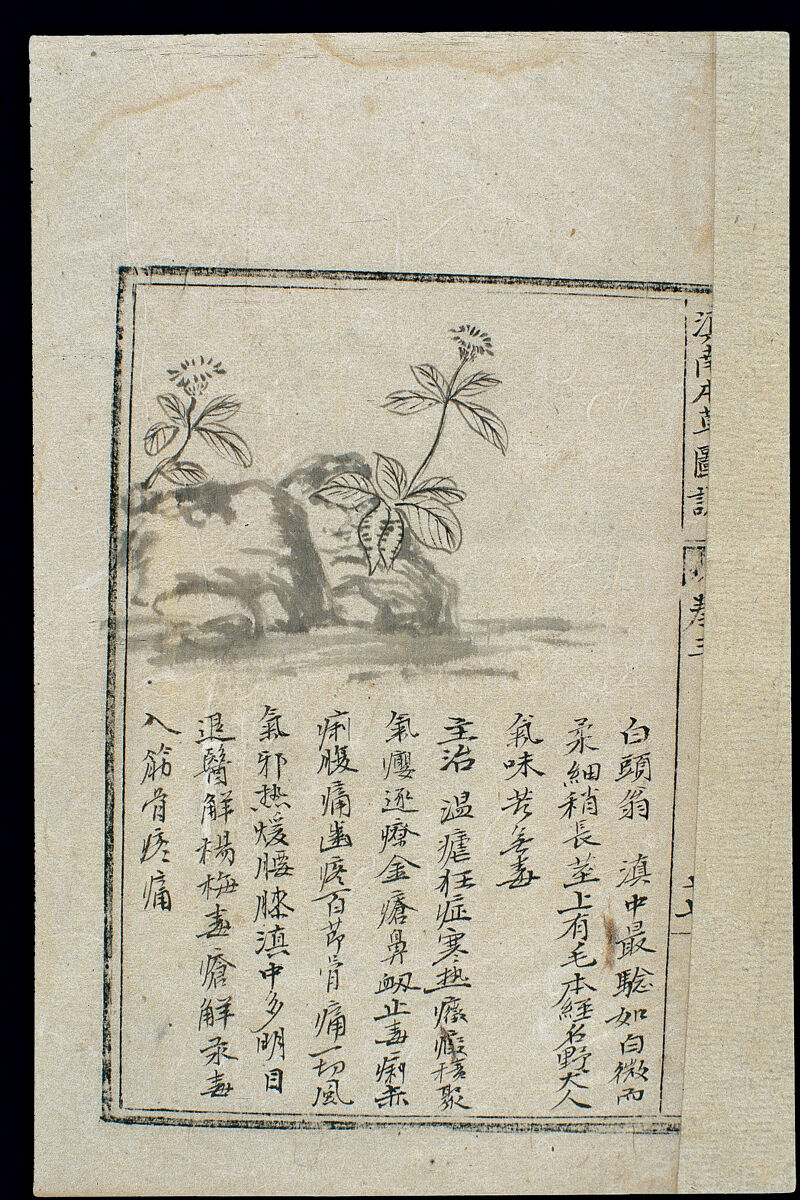 白頭翁　滇中最驗如白微而
柔細稍長莖上有毛本經名野丈人
氣味苦無毒
主治　温瘧狂症寒热癥瘕積聚
氣癭逐療金瘡鼻衂止毒痢赤
痢腹痛齒疼百節骨痛一切風
氣邪热煖腰膝滇中多明目
退醫解楊梅毒瘡解汞毒
入筋骨疼痛
滇南本草圖說
卷三